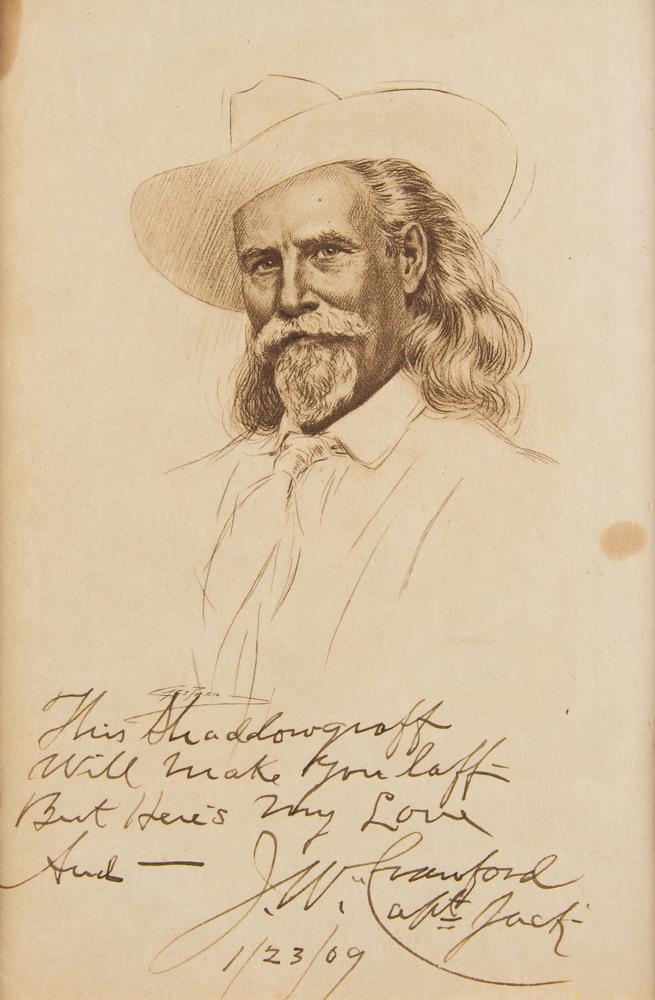 This Shaddowgraff
Will make you laff
But Here's my Love
And —
J. W. Crawford
Capt Jack
1/23/09